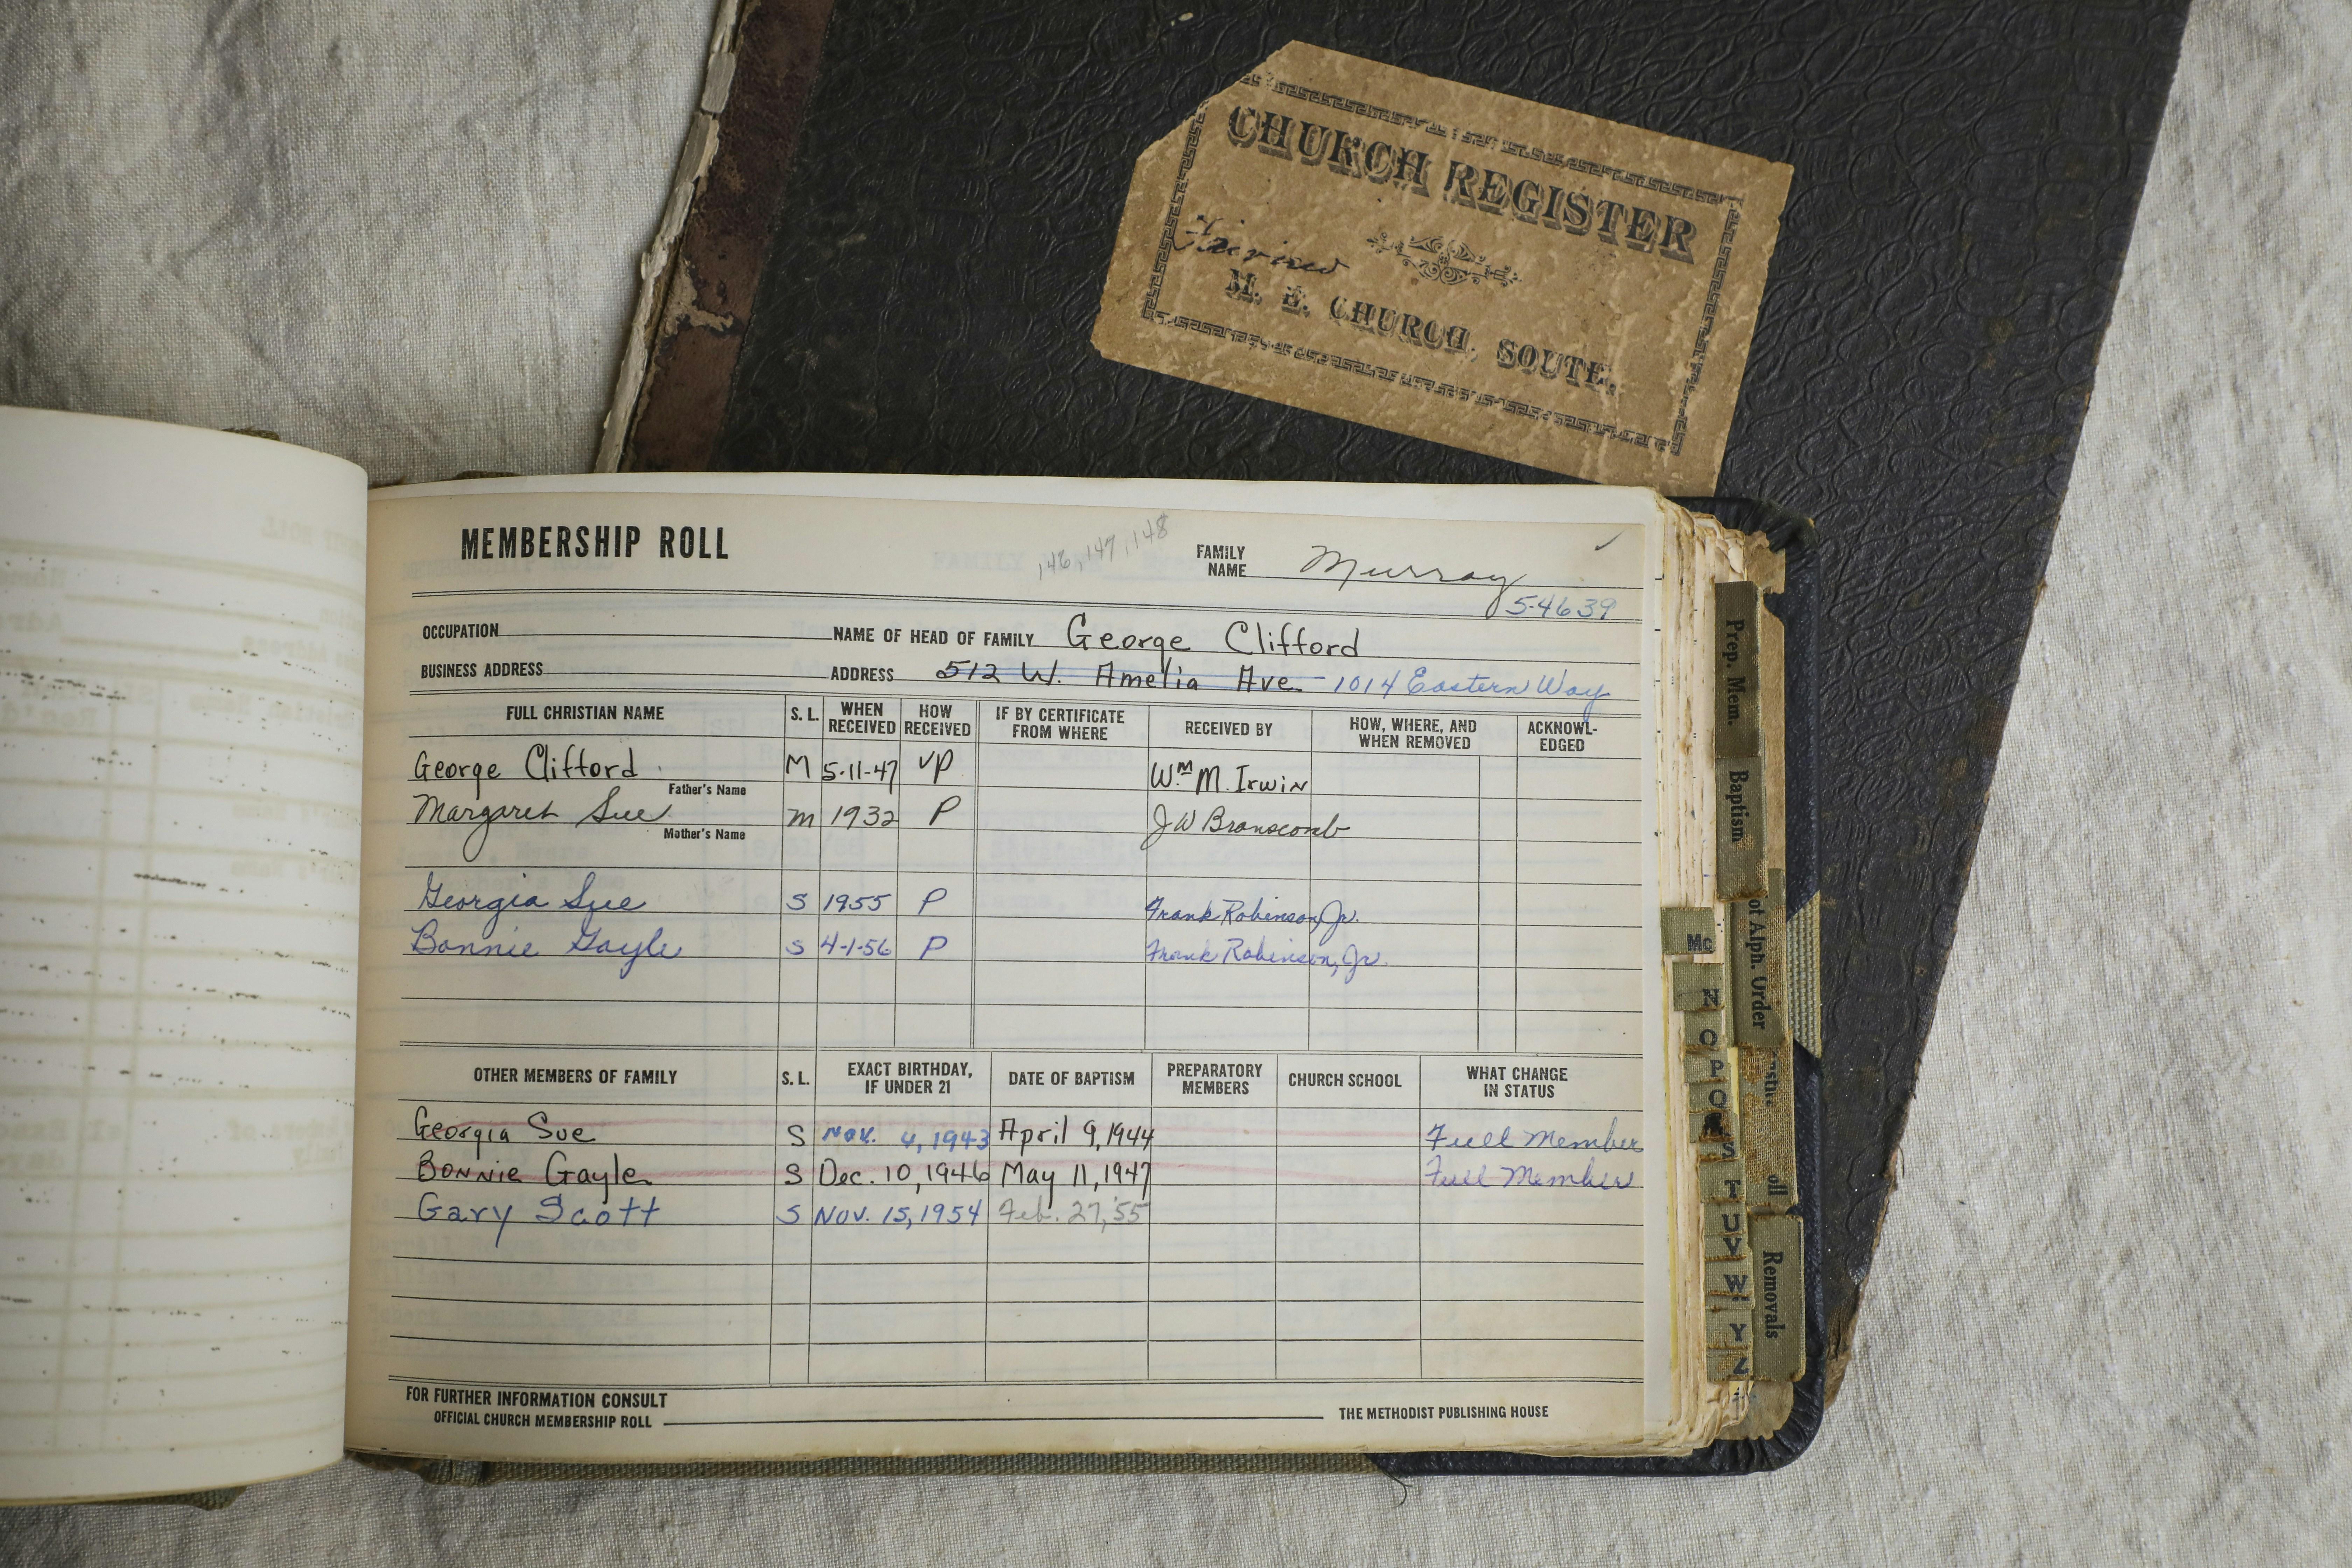 CHURCH REGISTER
M. E. CHURCH, SOUTH.
MEMBERSHIP ROLL
,146,147,148
FAMILY NAME Murray
5-4639
OCCUPATION NAME OF HEAD OF FAMILY George Clifford
BUSINESS ADDRESS ADDRESS 512 W. Amelia Ave. 1014 Eastern Way
FULL CHRISTIAN NAME S. L. WHEN RECEIVED HOW RECEIVED IF BY CERTIFICATE FROM WHERE RECEIVED BY HOW, WHERE, AND WHEN REMOVED ACKNOWL-EDGED
George Clifford M 5-11-47 VP Wm M. Irwin
Father's Name
Margaret Sue M 1932 P J W Branscomb
Mother's Name
Georgia Sue S 1955 P Frank Robinson, Jr.
Bonnie Gayle S 4-1-56 P Frank Robinson, Jr.
OTHER MEMBERS OF FAMILY S. L. EXACT BIRTHDAY, IF UNDER 21 DATE OF BAPTISM PREPARATORY MEMBERS CHURCH SCHOOL WHAT CHANGE IN STATUS
Georgia Sue S Nov. 4, 1943 April 9, 1944 Full Member
Bonnie Gayle S Dec. 10, 1946 May 11, 1947 Full Member
Gary Scott S Nov. 15, 1954 Feb. 27, '55
FOR FURTHER INFORMATION CONSULT
OFFICIAL CHURCH MEMBERSHIP ROLL THE METHODIST PUBLISHING HOUSE
Prep. Mem.
Baptism
Alph. Order
Removals
Mc
N
O
P
Q
S
T
U
V
W
Y
Z